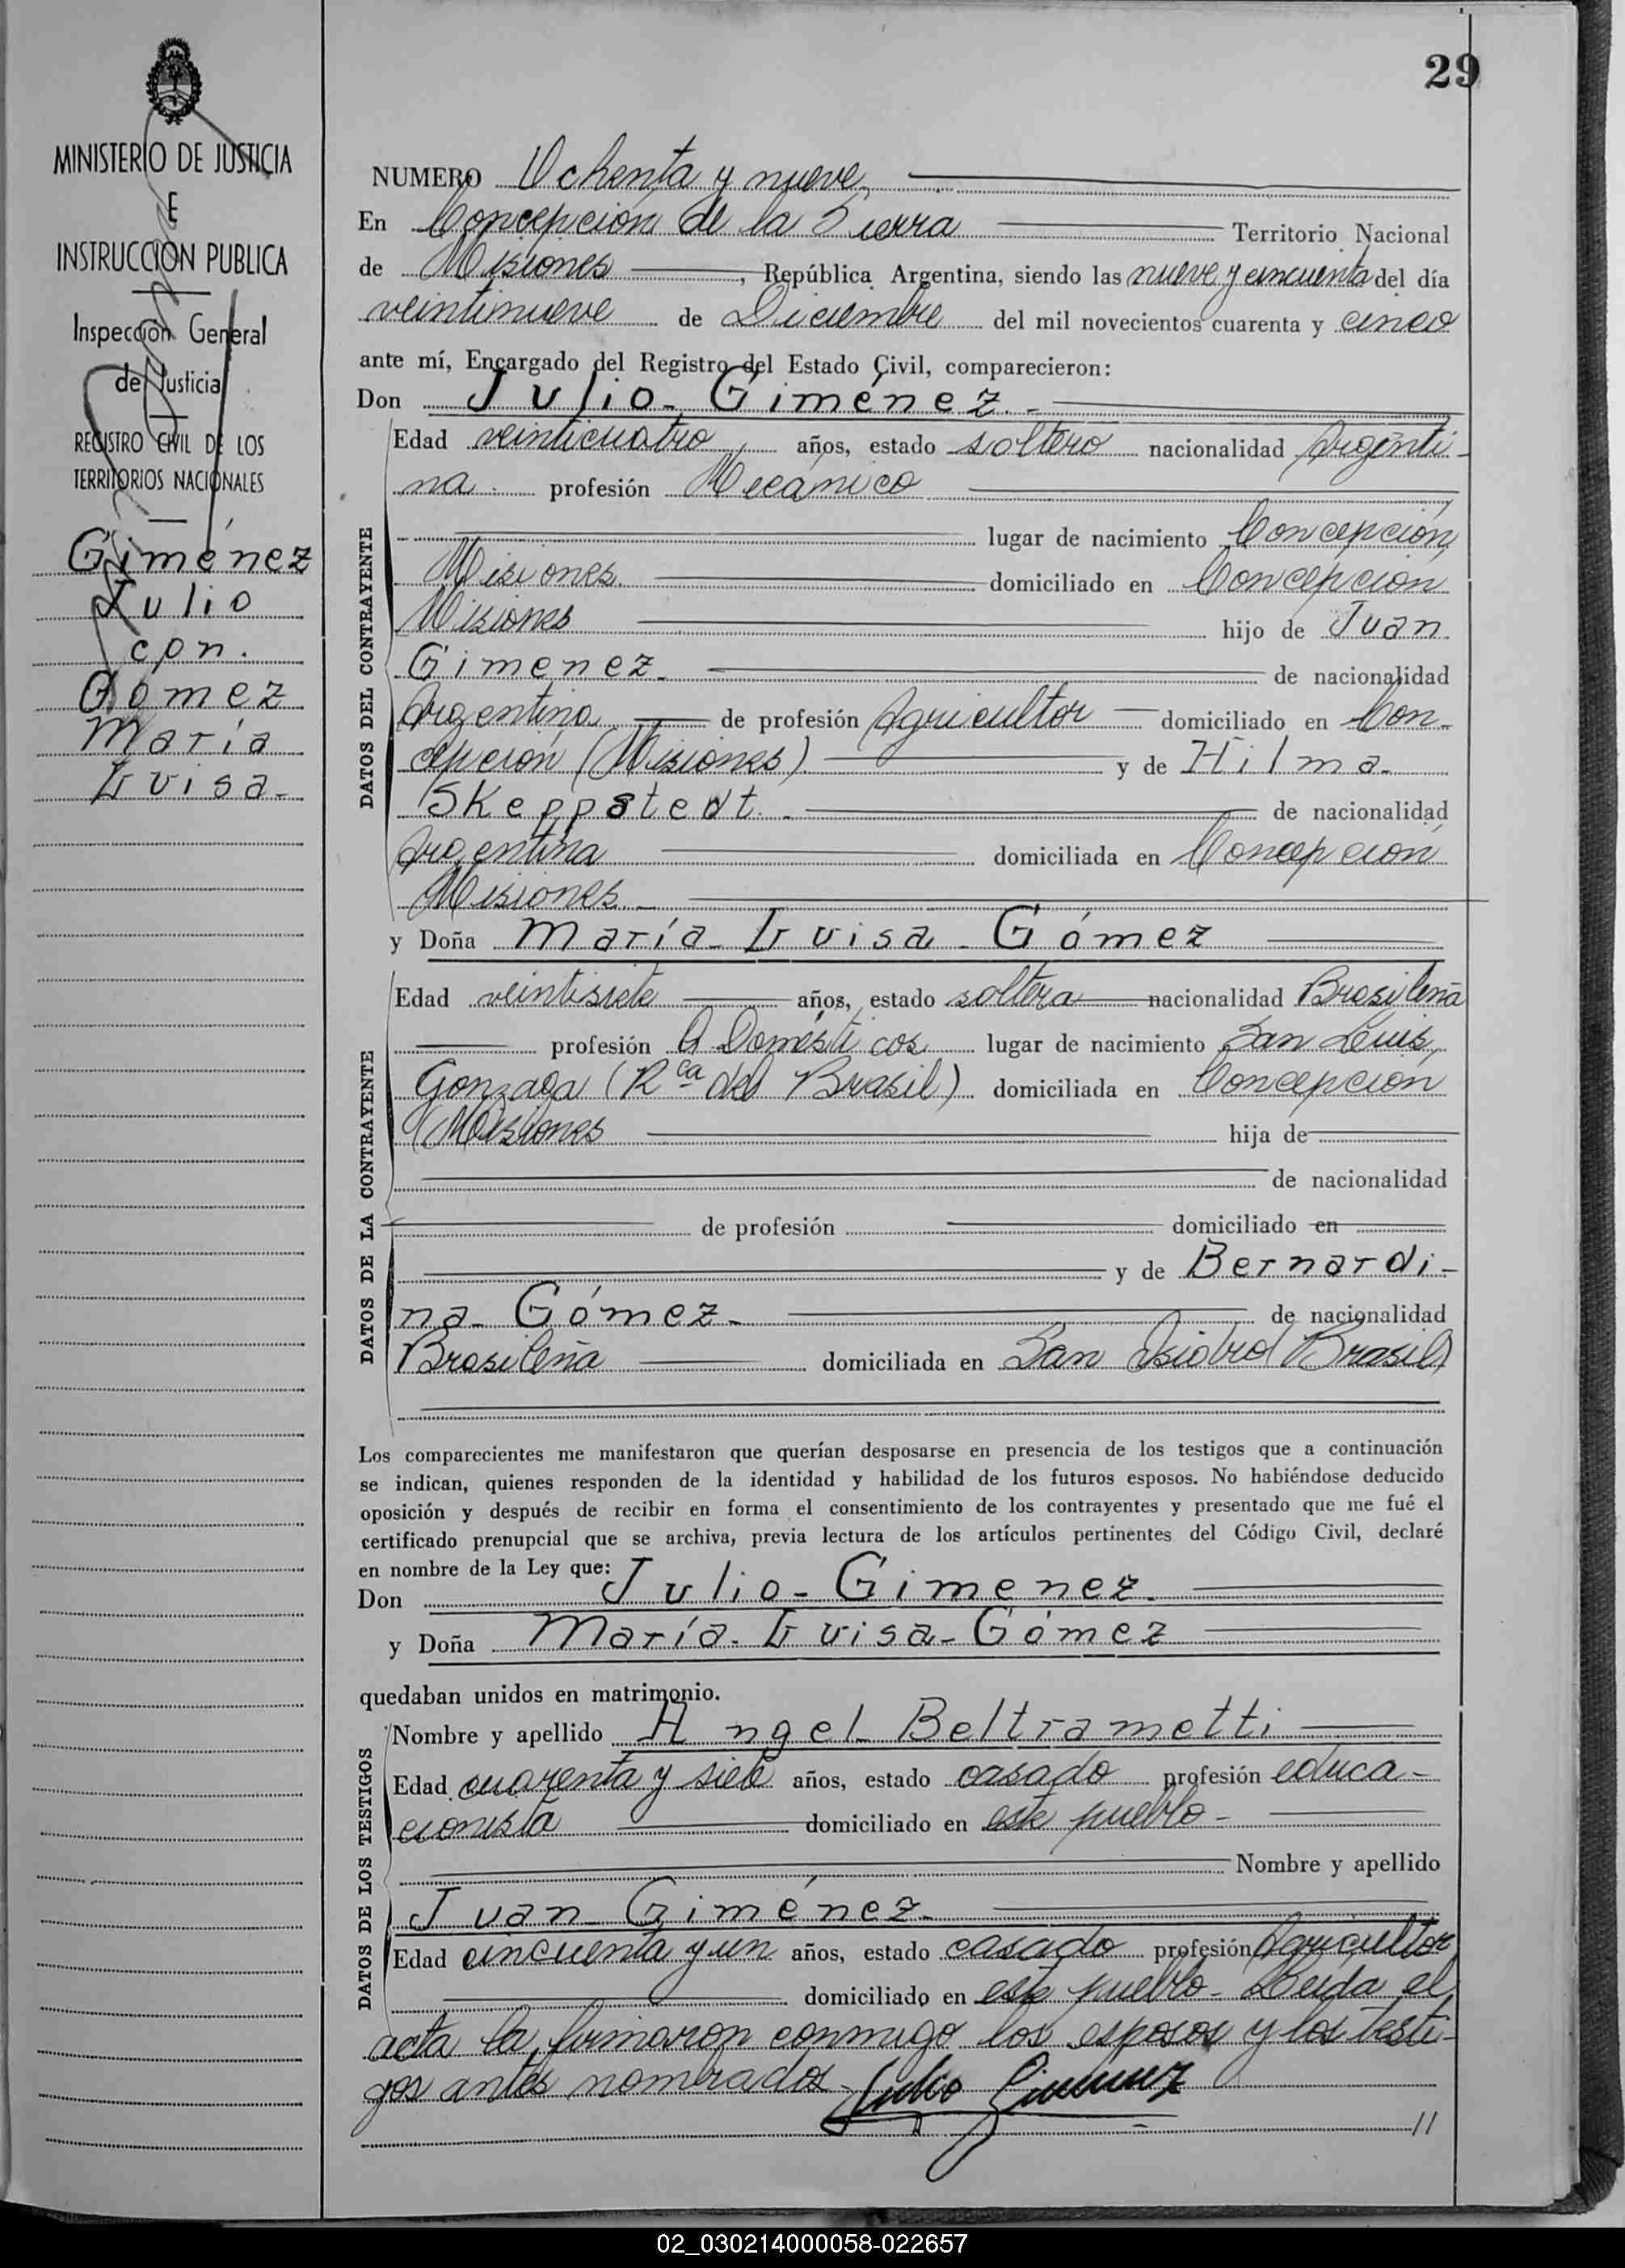 29
MINISTERIO DE JUSTICIA
E
INSTRUCCION PUBLICA
Inspección General
de Justicia
REGISTRO CIVIL DE LOS
TERRITORIOS NACIONALES
Giménez
Julio
con.
Gómez
María
Luisa-
NUMERO Ochenta y nueve,
En Concepción de la Sierra Territorio Nacional
de Misiones, República Argentina, siendo las nueve y cincuenta del día
veintinueve de Diciembre del mil novecientos cuarenta y cinco
ante mí, Encargado del Registro del Estado Civil, comparecieron:
Don Julio- Giménez.-
DATOS DEL CONTRAYENTE
Edad veinticuatro, años, estado soltero nacionalidad Argenti-
na. profesión Mecánico
lugar de nacimiento Concepción,
Misiones. domiciliado en Concepción
Misiones hijo de Juan
Gimenez- de nacionalidad
Argentina de profesión Agricultor domiciliado en Con-
cepción (Misiones) y de Hilma-
Skeppstedt.- de nacionalidad
Argentina domiciliada en Concepción
Misiones.-
y Doña María- Luisa- Gómez
DATOS DE LA CONTRAYENTE
Edad veintisiete años, estado soltera nacionalidad Brasileña
profesión Q. Domésticos lugar de nacimiento San Luis,
Gonzaga (Rca del Brasil) domiciliada en Concepción
(Misiones hija de
de nacionalidad
de profesión domiciliado en
y de Bernardi-
na- Gómez- de nacionalidad
Brasileña domiciliada en San Isidro (Brasil)
Los comparecientes me manifestaron que querían desposarse en presencia de los testigos que a continuación
se indican, quienes responden de la identidad y habilidad de los futuros esposos. No habiéndose deducido
oposición y después de recibir en forma el consentimiento de los contrayentes y presentado que me fué el
certificado prenupcial que se archiva, previa lectura de los artículos pertinentes del Código Civil, declaré
en nombre de la Ley que:
Don Julio- Gimenez-
y Doña María- Luisa- Gómez
quedaban unidos en matrimonio.
DATOS DE LOS TESTIGOS
Nombre y apellido Angel- Beltrametti
Edad cuarenta y siete años, estado casado profesión educa-
cionista domiciliado en este pueblo-
Nombre y apellido
Juan- Giménez-
Edad cincuenta y un años, estado casado profesión Agricultor
domiciliado en este pueblo- Leída el
acta la firmaron conmigo los esposos y los testi-
gos antes nombrados- Julio Gimenez
//
02_030214000058-022657